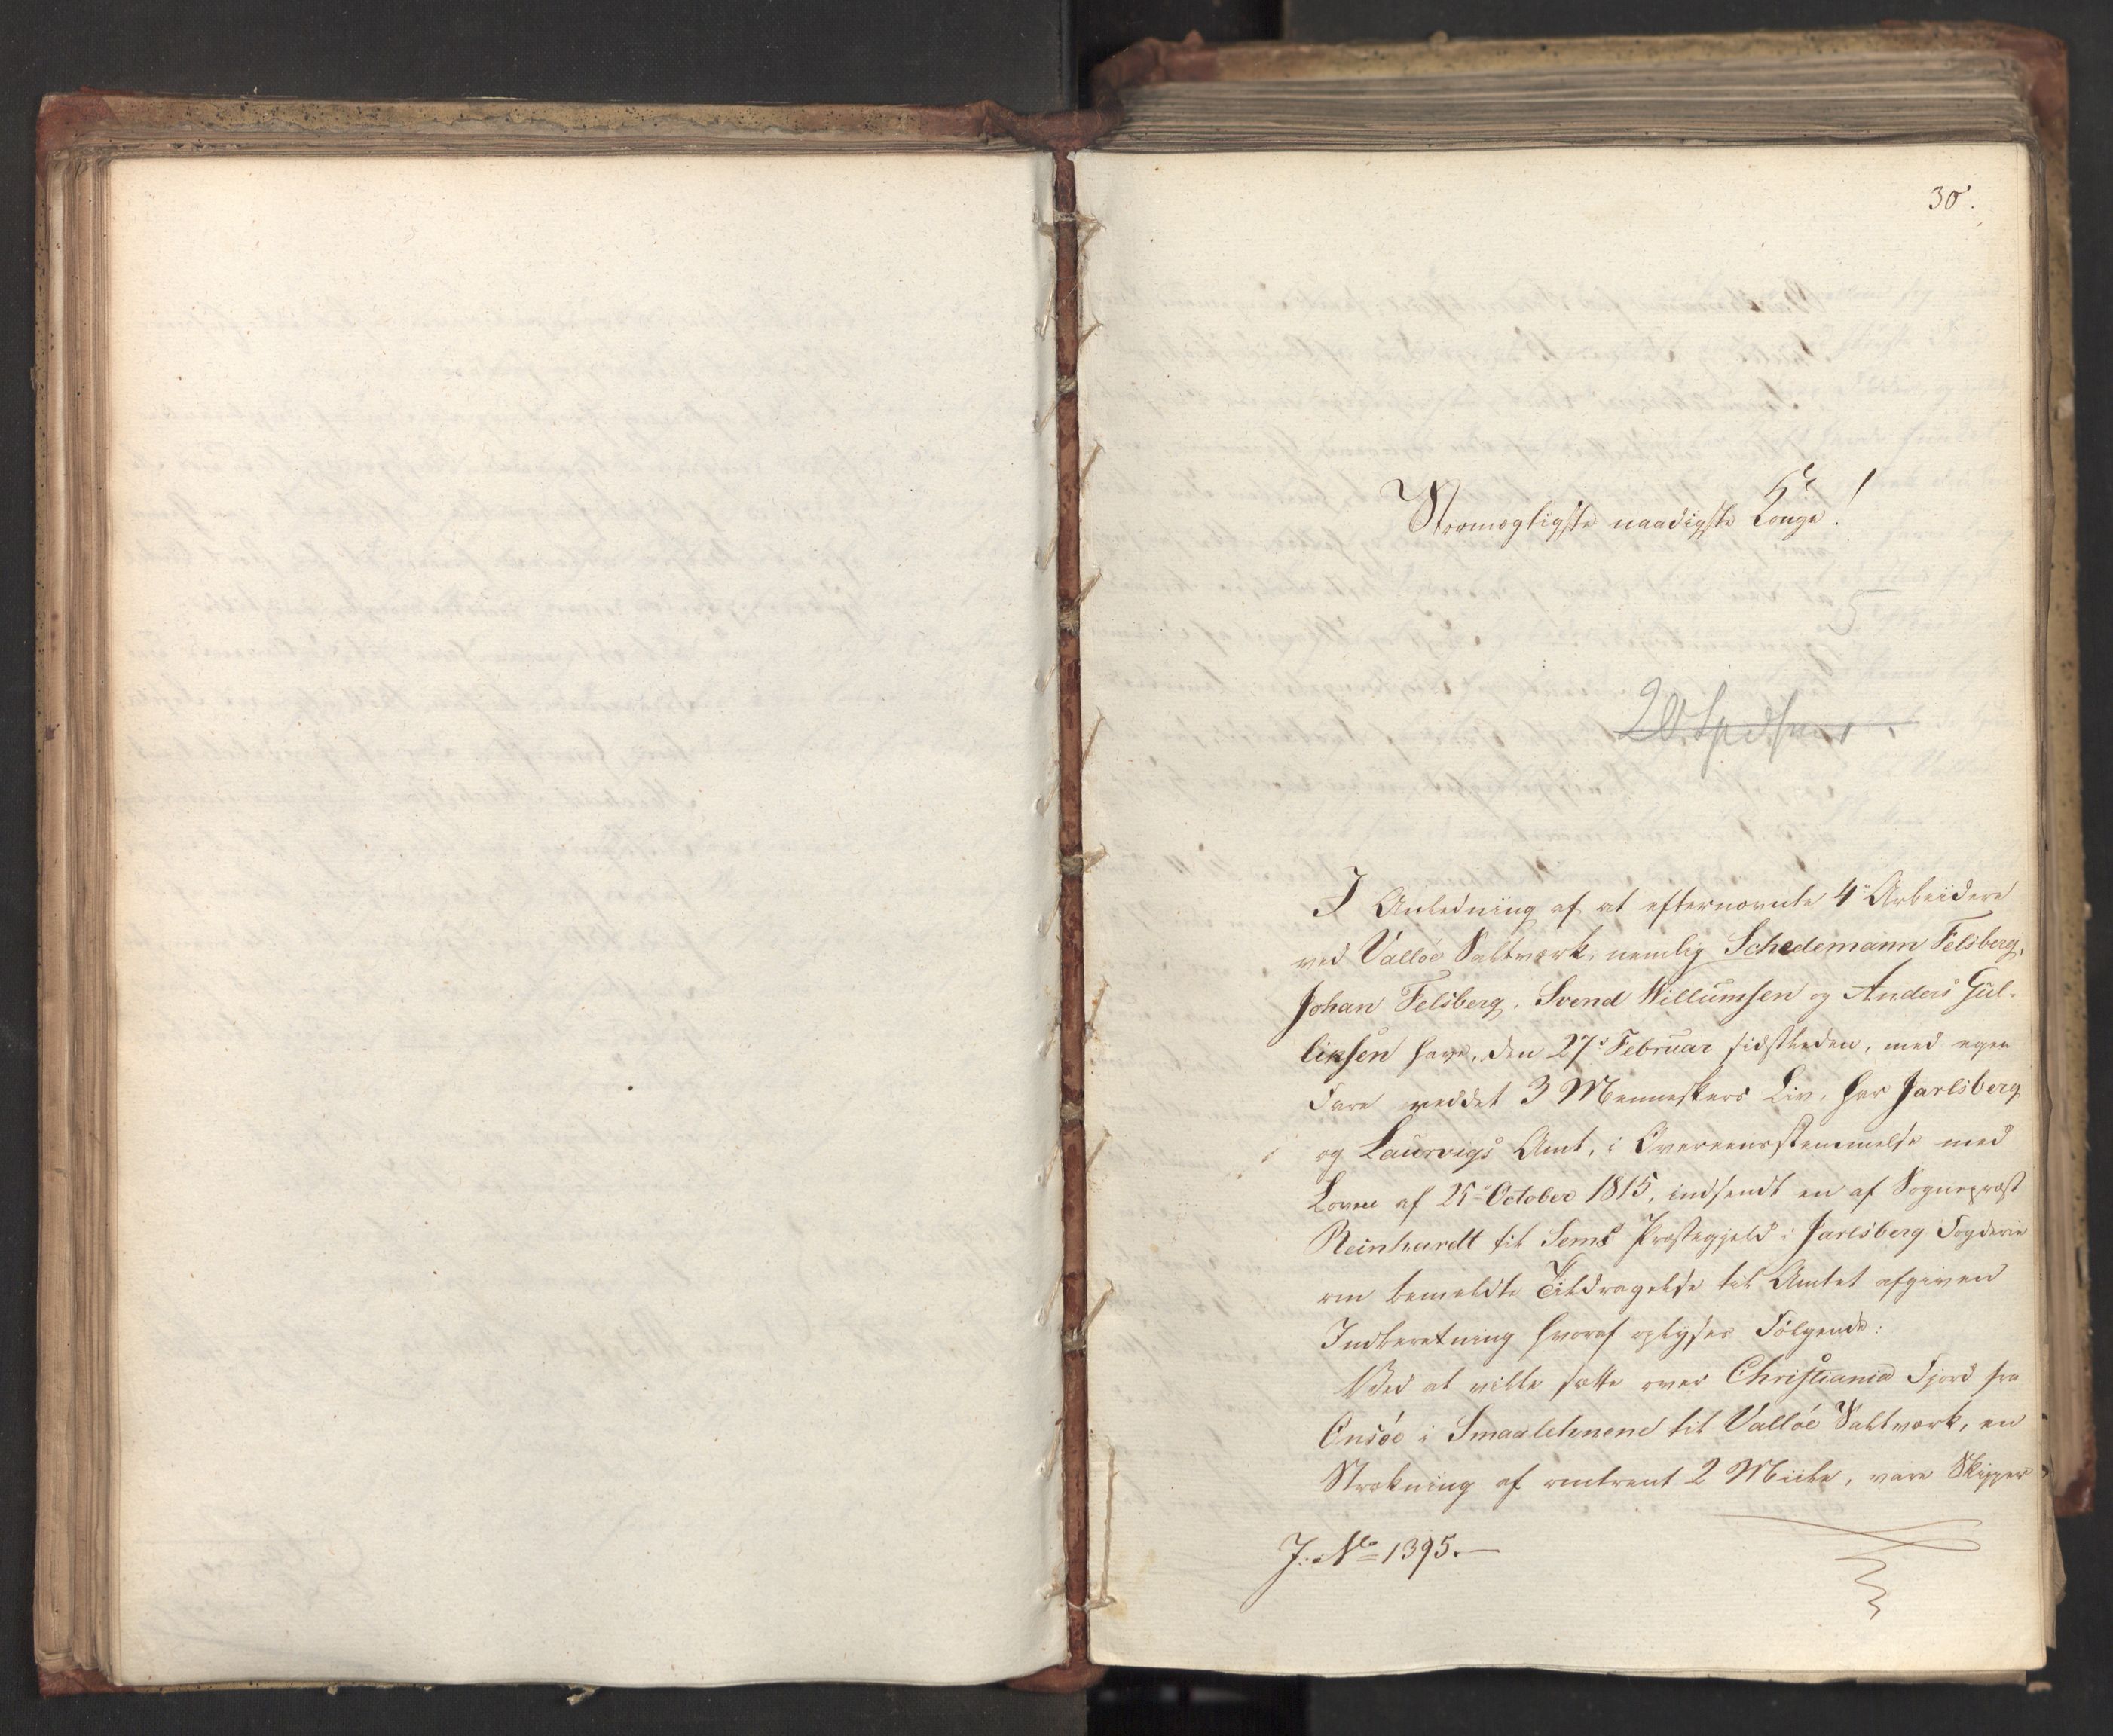 30.
Stormægtigste naadigste Konge!
5
I Anledning af at efternævnte 4 Arbeidere
ved Valløe Saltværk, nemlig Schedemann Felsberg,
Johan Felsberg, Svend Willumsen og Anders Gul-
liksen have, den 27. Februar sidstleden, med egen
Fare reddet 3 Menneskers Liv, har Jarlsberg
og Laurvigs Amt, i Overeensstemmelse med
Loven af 25 October 1815, indsendt en af Sognepræst
Reinhardt til Sems Præstegjeld i Jarlsberg Fogderie
om bemeldte Tildragelse til Amtet afgiven
Indberetning hvoraf oplyses Følgende:
Ved at ville sætte over Christiania Fjord fra
Onsøe i Smaalehnene til Valløe Saltværk, en
Strækning af omtrent 2 Miile, vare Skipper
J: No 1395.—